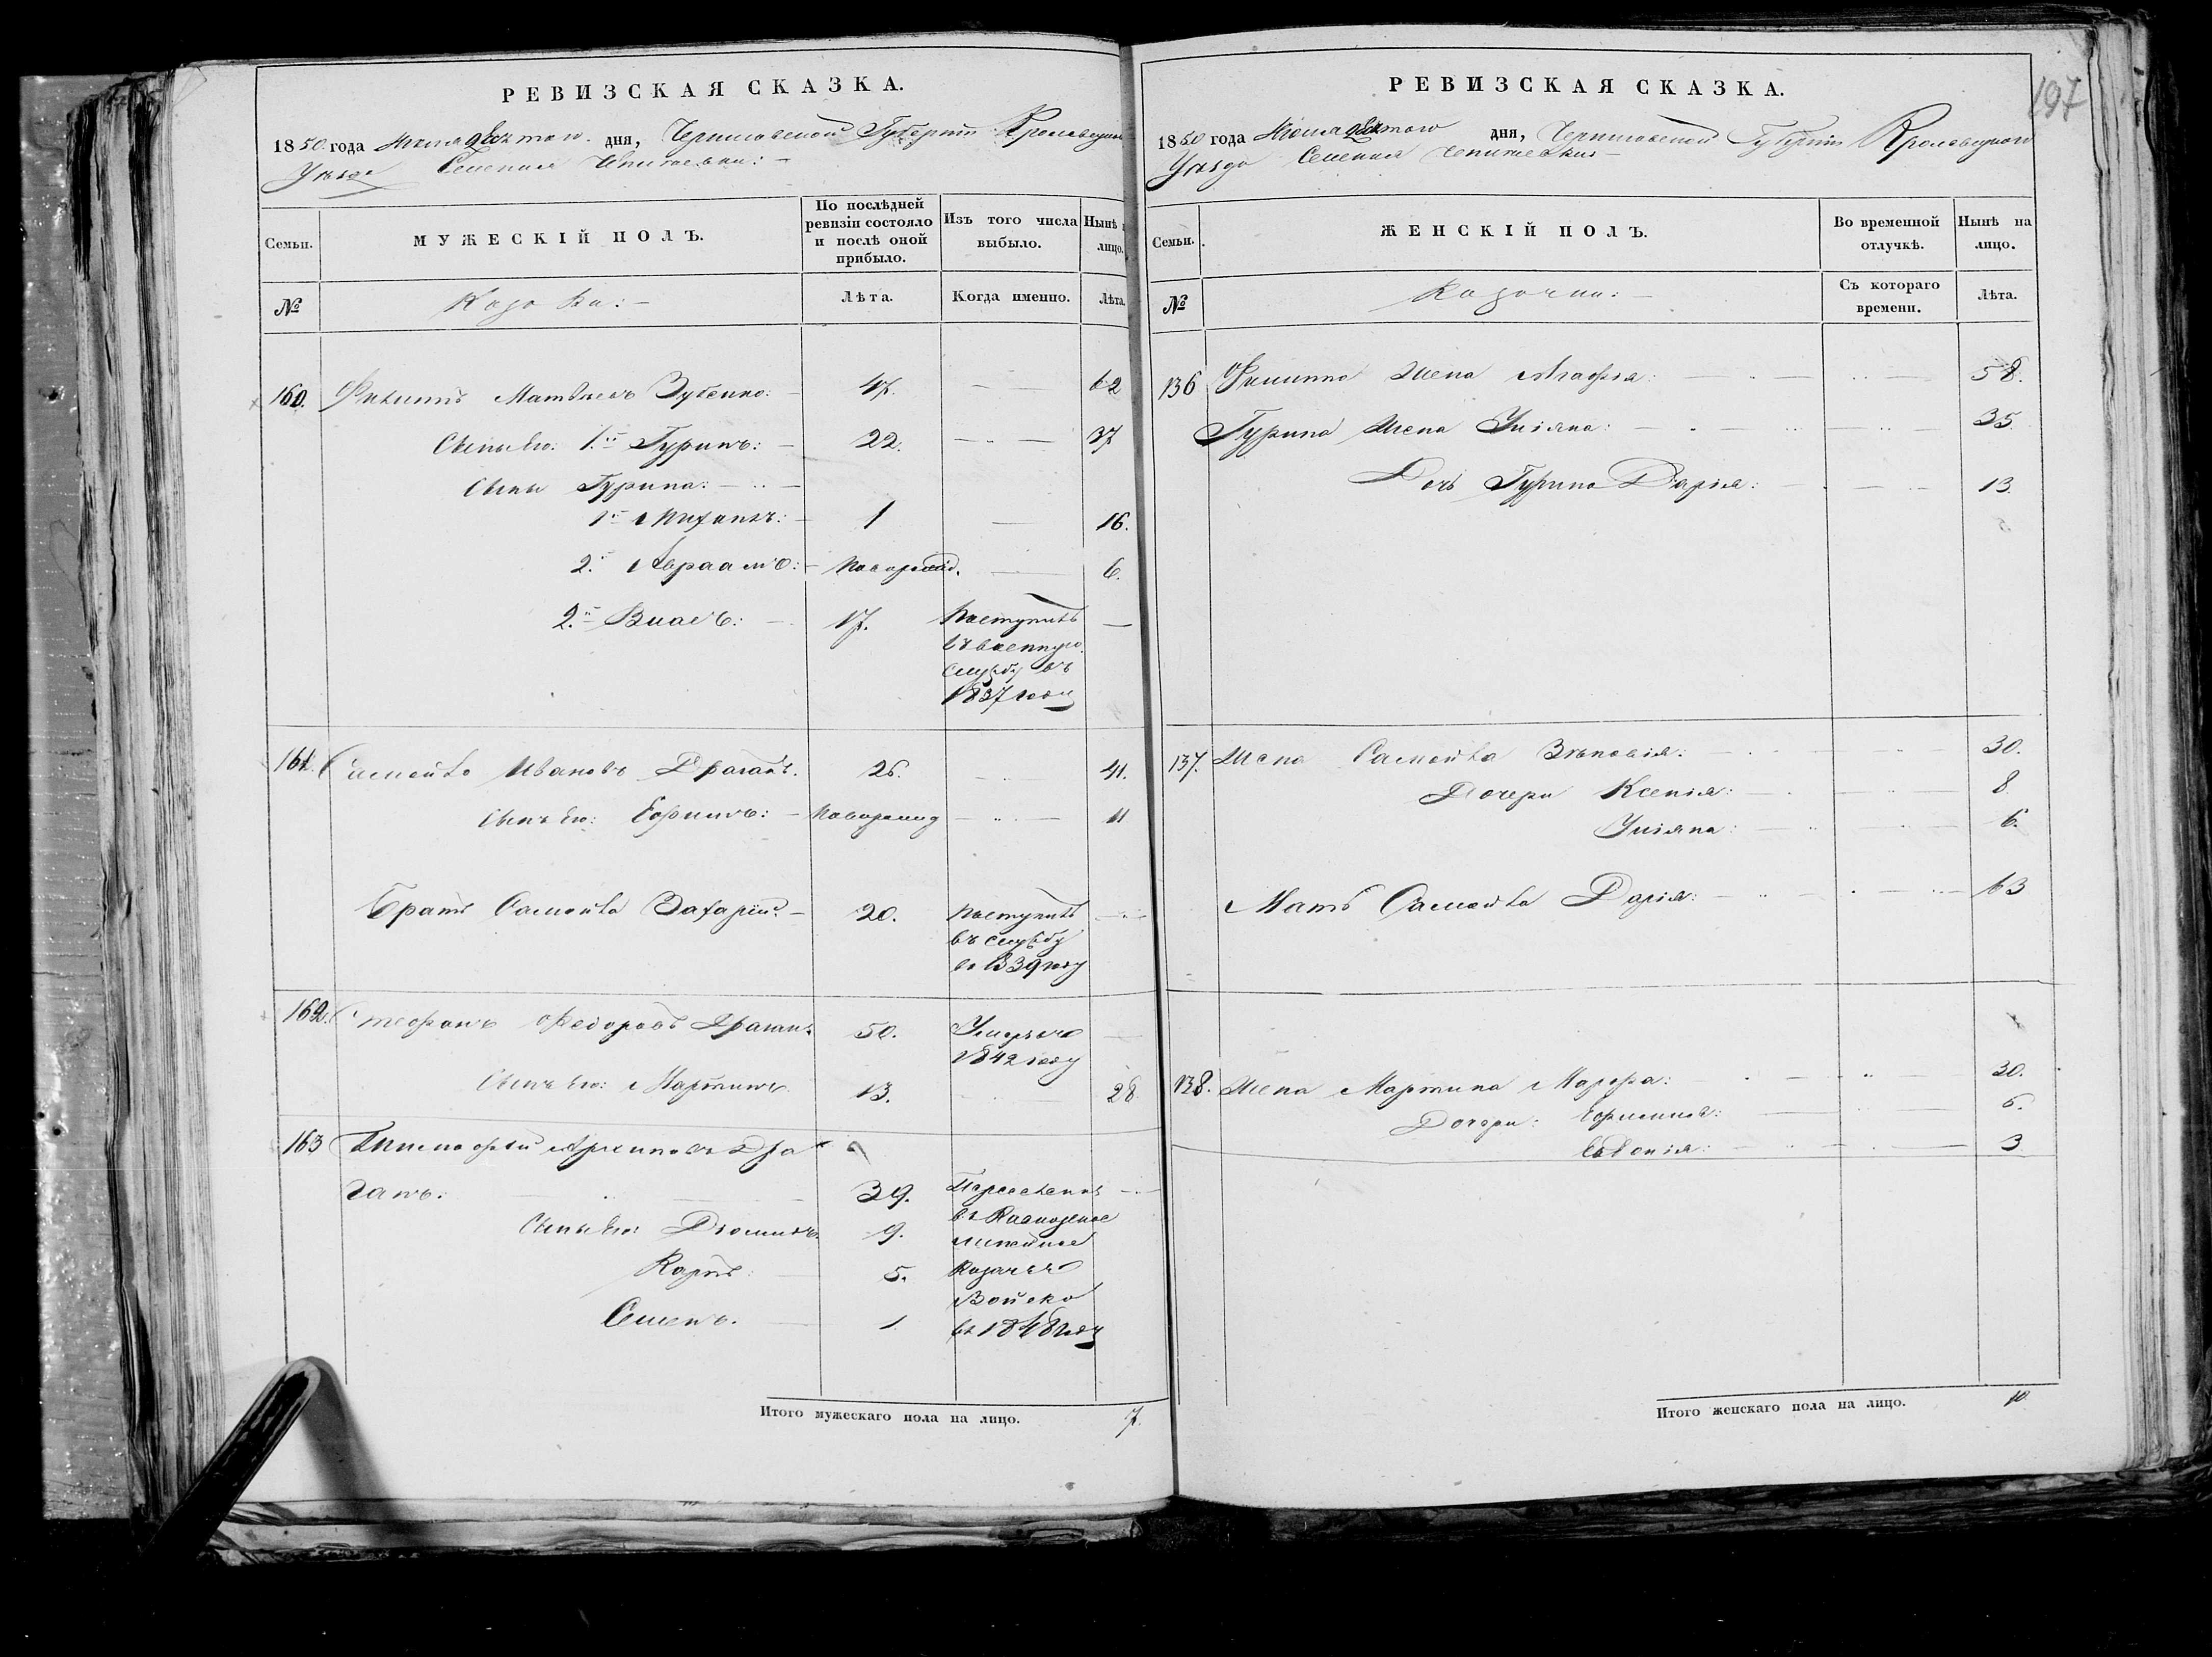 РЕВИЗСКАЯ СКАЗКА.
1850 года дня, Черниговской Губерніи Кролевецкаго
Уѣзда Селенія
Семьи.
МУЖЕСКІЙ ПОЛЪ.
По послѣдней ревизіи состояло и послѣ оной прибыло.
Изъ того числа выбыло.
Нынѣ лицо.
№
Козаки:
Лѣта.
Когда именно.
Лѣта.
160. Филиппъ Матвѣевъ Зубенко: 47. 62
Сыны Его: 1й Гуринъ: 22. 37
Сыны Гурина:
1й Михаилъ: 1 16.
2. Авраамъ: Новорожд. 6.
2й Власъ: 17. Поступилъ
въ военную
службу въ
1837 году
161. Самойло Ивановъ Драганъ. 26. 41.
Сынъ Его: Ефимъ: Новорожд 11
Братъ Самойла Захарій. 20. Поступилъ
въ службу
въ 1839 году
162. Стефанъ Федоровъ Драганъ 50. Умеръ въ
1842 году
Сынъ Его: Мартинъ 13. 28
163 Тимофей Архиповъ Дра
ганъ. 39. Переселенъ
въ Кавказское
Сыны Его: Діомидъ. 9. линейное
Карпъ: 5. Козачье
Войско
Семенъ. 1 въ 1848 году
Итого мужескаго пола на лицо. 7.
197
РЕВИЗСКАЯ СКАЗКА.
1850 года дня, Черниговской Губерніи Кролевецкаго
Уѣзда Селенія
Семьи.
ЖЕНСКІЙ ПОЛЪ.
Во временной отлучкѣ.
Нынѣ на лицо.
№
Козачки:
Съ котораго времени.
Лѣта.
136 Филиппа Жена Агафія: 58.
Гурина Жена Уліяна: 35
Дочь Гурина Дарія: 13.
137. Жена Самойла Зѣновія: 30.
Дочери Ксенія: 8
Уліяна: 6.
Мать Самойла Дарія: 63
138. Жена Мартина Марфа: 30.
Дочери: Ефимія: 6.
Евдокія: 3
Итого женскаго пола на лицо. 10